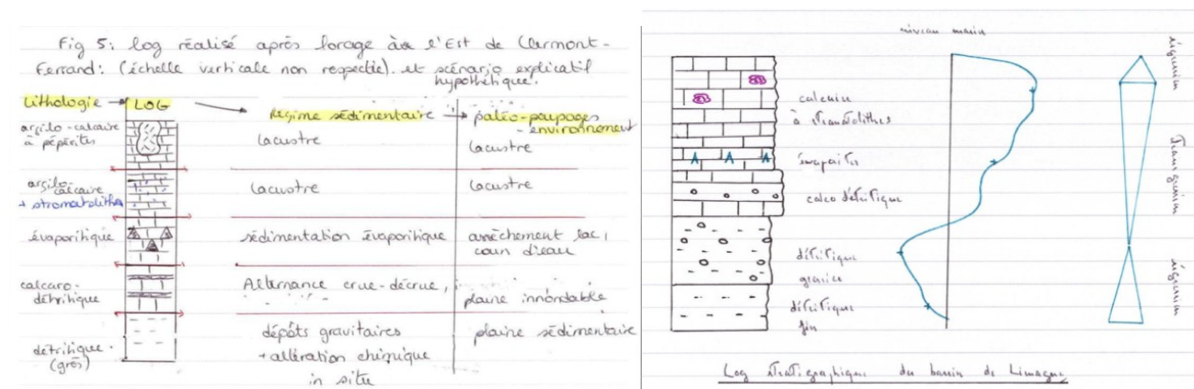 Fig 5: log réalisé après forage à l'Est de Clermont-
Ferrand: (échelle verticale non respectée). et scénario explicatif
hypothétique.
Lithologie
LOG
Régime sédimentaire
paléo-paysages
- environnement
argilo-calcaire
à pépérites
Lacustre
Lacustre
argilo-calcaire
+ stromatolithe
Lacustre
Lacustre
évaporitique
sédimentation évaporitique
assèchement lac,
coin d'eau
calcaro-
détritique
Alternance crue-décrue,
plaine innondable
détritique
(grès)
dépôts gravitaires
+ altération chimique
in situ
plaine sédimentaire
niveau marin
calcaire
à stromatolithes
évaporites
calco détritique
détritique
grossier
détritique
fin
régression
Transgression
régression
Log stratigraphique du bassin de Limagne